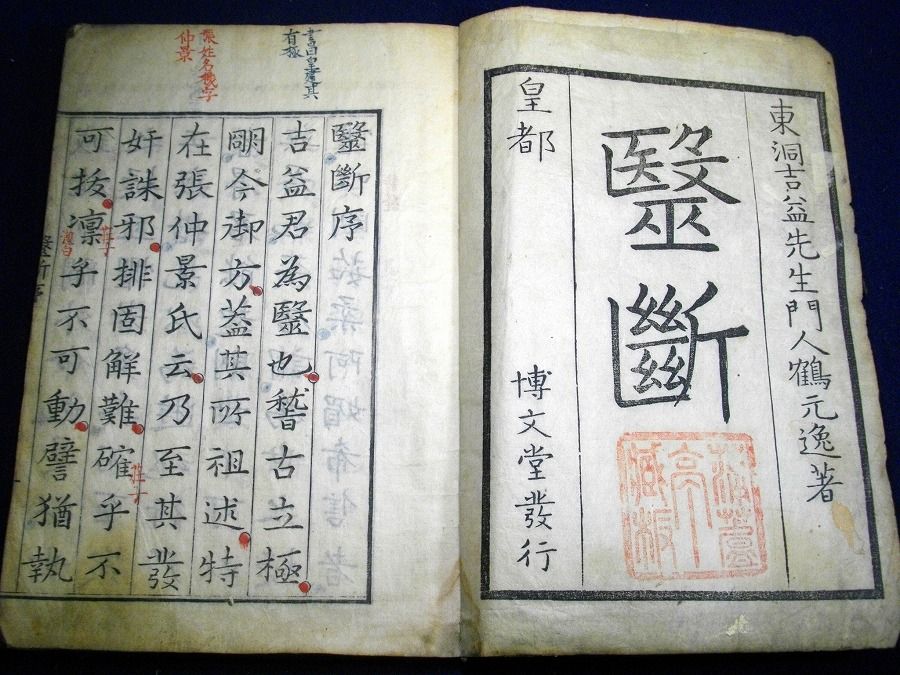 東洞吉益先生門人鶴元逸著
毉斷
皇都
博文堂發行
毉斷序
吉益君為毉也稽古立極
明今御方蓋其所祖述特
在張仲景氏云乃至其發
奸誅邪排固解難確乎不
可拔凛乎不可動譬猶執
書曰皇建其
有極
張姓名機字
仲景
莊子
莊子